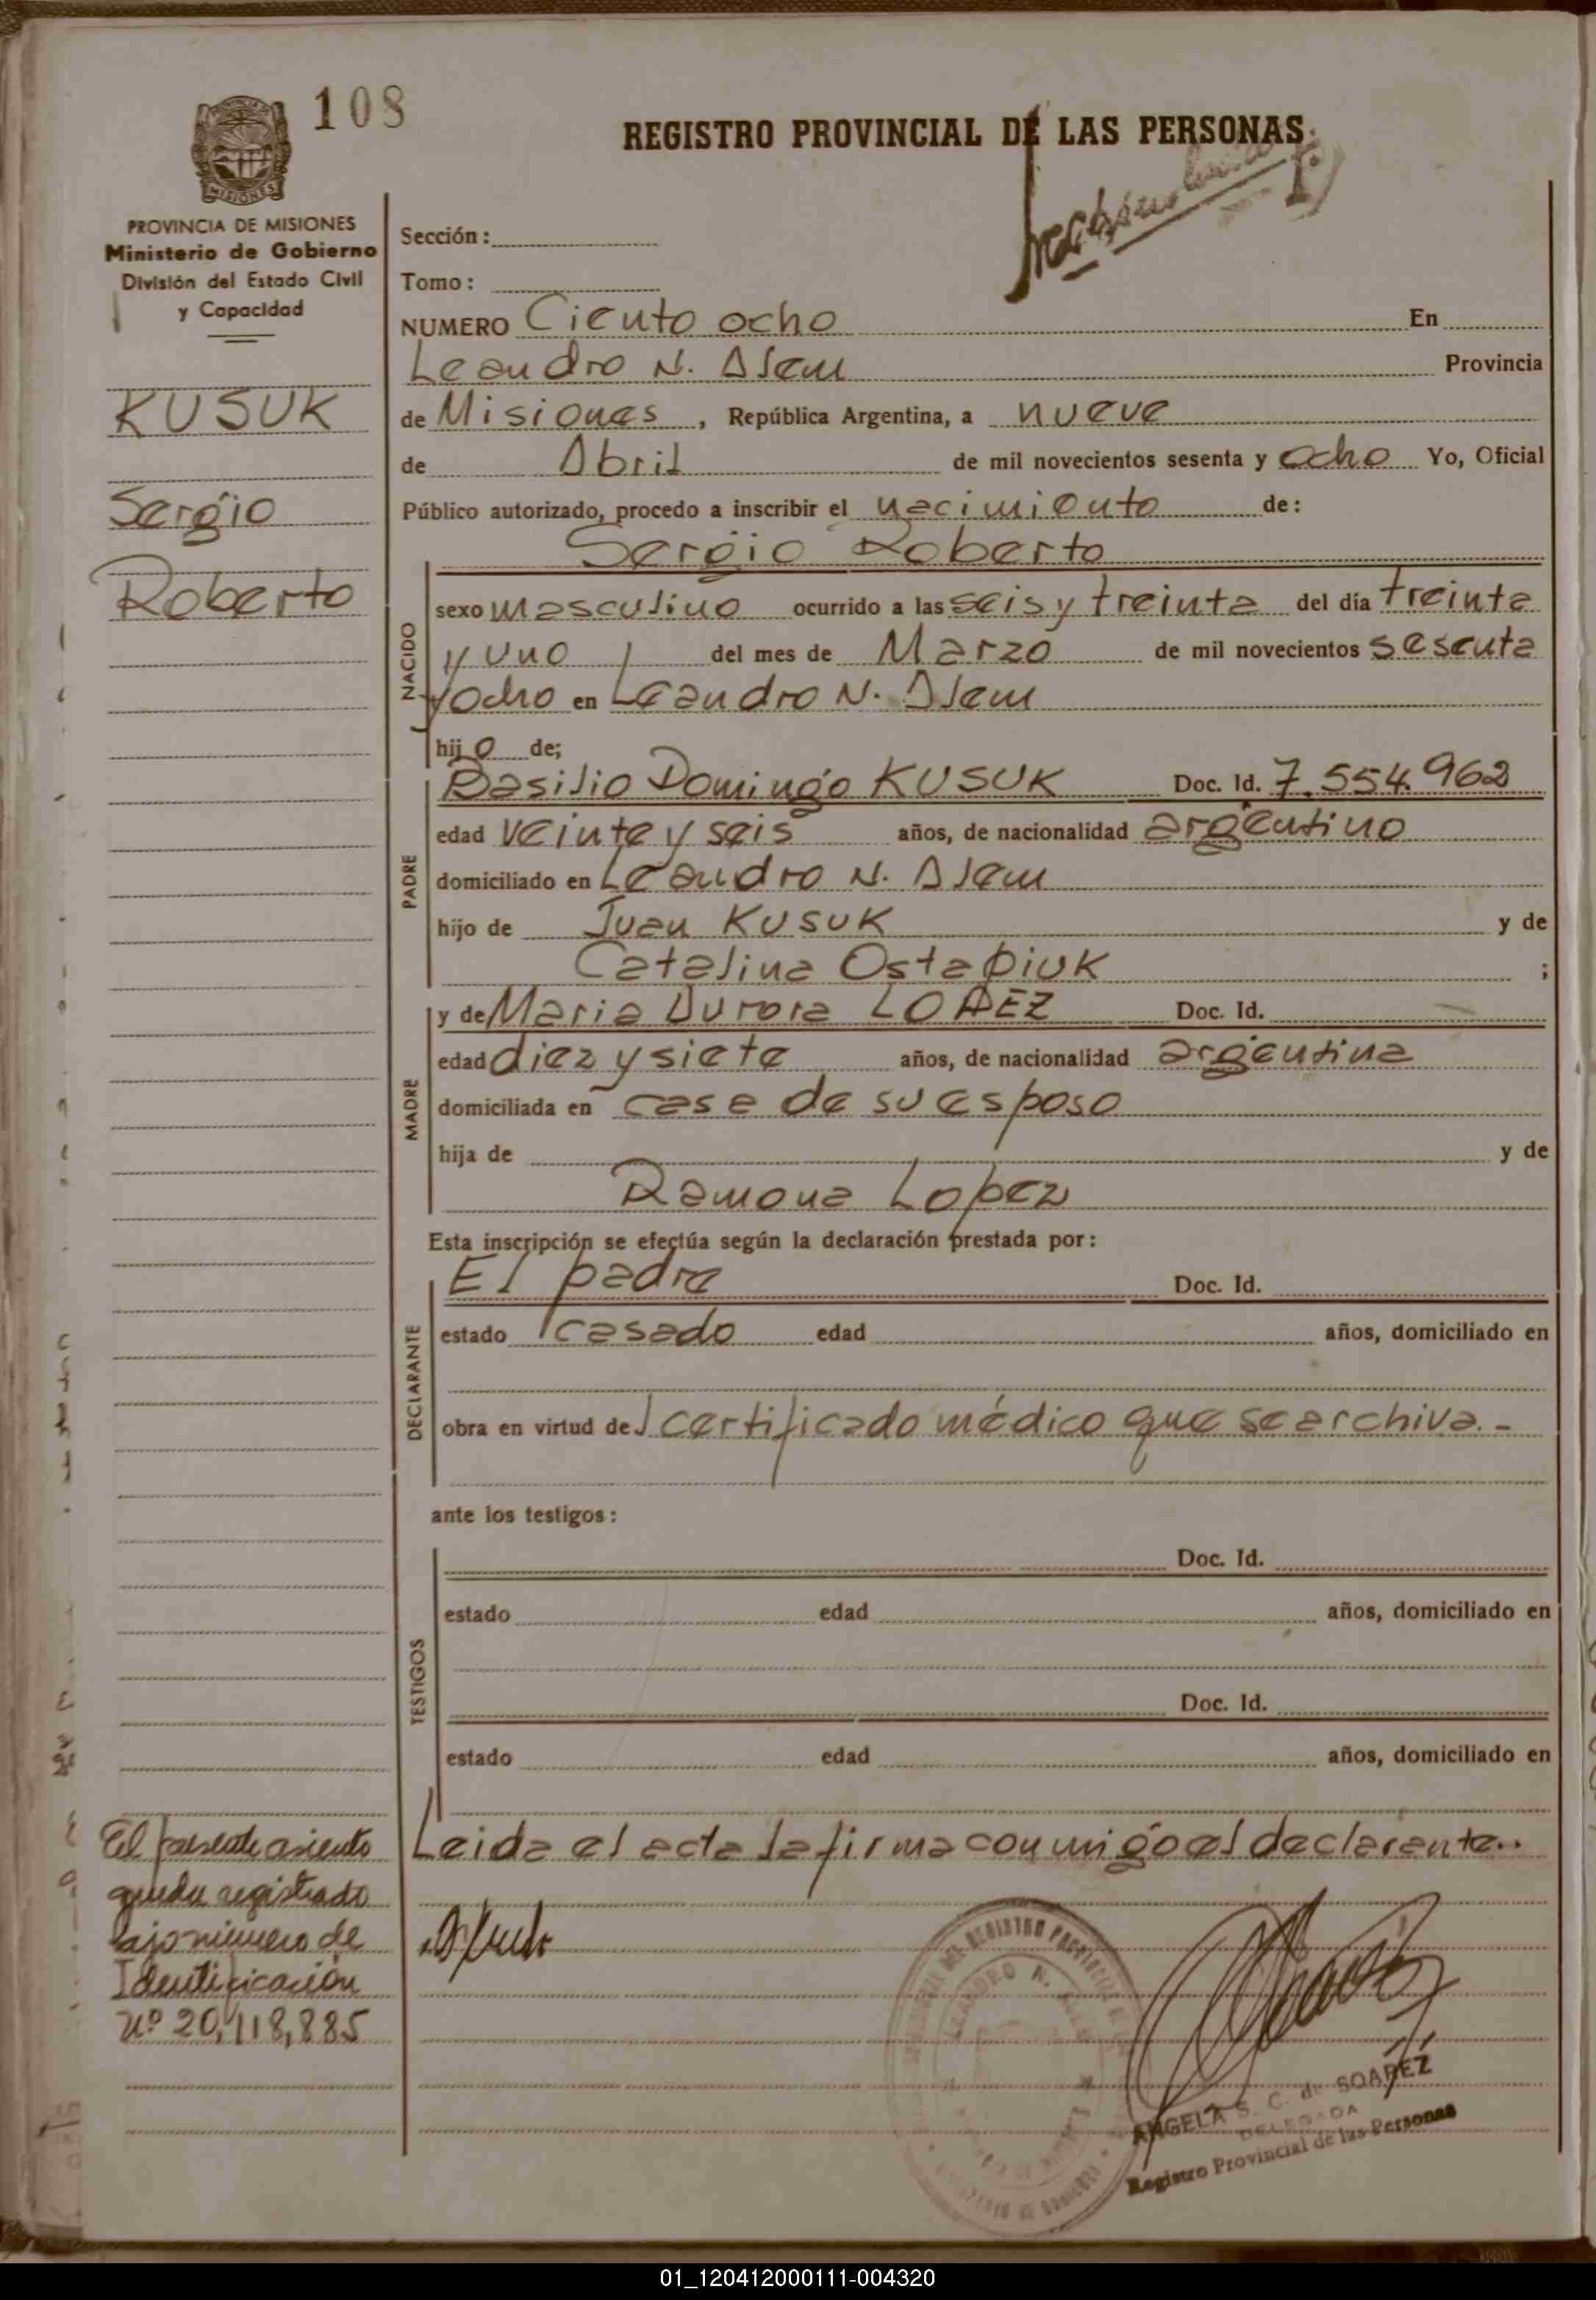 108
REGISTRO PROVINCIAL DE LAS PERSONAS
PROVINCIA DE MISIONES
Ministerio de Gobierno
División del Estado Civil
y Capacidad
KUSUK
Sergio
Roberto
Sección:
Tomo:
NUMERO Ciento ocho En
Leandro N. Alem Provincia
de Misiones, República Argentina, a nueve
de Abril de mil novecientos sesenta y ocho Yo, Oficial
Público autorizado, procedo a inscribir el nacimiento de:
Sergio Roberto
NACIDO
sexo masculino ocurrido a las seis y treinta del día treinta
y uno del mes de Marzo de mil novecientos sesenta
y ocho en Leandro N. Alem
hijo de;
PADRE
Basilio Domingo KUSUK Doc. Id. 7.554.962
edad veinte y seis años, de nacionalidad argentino
domiciliado en Leandro N. Alem
hijo de Juan KUSUK y de
Catalina Ostapiuk ;
MADRE
y de Maria Aurora LOPEZ Doc. Id.
edad diez y siete años, de nacionalidad argentina
domiciliada en casa de su esposo
hija de y de
Ramona Lopez
Esta inscripción se efectúa según la declaración prestada por:
DECLARANTE
El padre Doc. Id.
estado casado edad años, domiciliado en
obra en virtud de certificado médico que se archiva.-
ante los testigos:
TESTIGOS
Doc. Id.
estado edad años, domiciliado en
Doc. Id.
estado edad años, domiciliado en
Leida el acta la firma conmigo el declarante..
El presente asiento
queda registrado
bajo número de
Identificación
Nº 20,118,885
ANGELA S. C. de SOAREZ
DELEGADA
Registro Provincial de las Personas
01_120412000111-004320